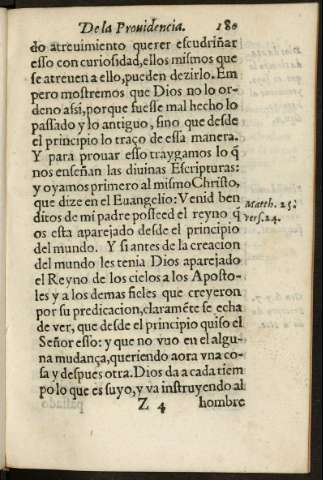 De la Prouidencia. 180
do atreuimiento querer escudriñar
esso con curiosidad, ellos mismos que
se atreuen a ello, pueden dezirlo. Em
pero mostremos que Dios no lo or-
deno assi, porque fuesse mal hecho lo
passado y lo antiguo, sino que desde
el principio lo traço de essa manera.
Y para prouar esso traygamos lo q̃
nos enseñan las diuinas Escripturas:
y oyamos primero al mismo Christo,
que dize en el Euangelio: Venid ben
ditos de mi padre posseed el reyno q̃
os esta aparejado desde el principio
del mundo. Y si antes de la creacion
del mundo les tenia Dios aparejado
el Reyno de los cielos a los Aposto-
les y a los demas fieles que creyeron
por su predicacion, claramẽte se echa
de ver, que desde el principio quiso el
Señor esso: y que no vuo en el algu-
na mudança, queriendo aora vna co-
sa y despues otra. Dios da a cada tiem
po lo que es suyo, y va instruyendo al
Z 4 hombre
Matth. 25.
vers. 24.